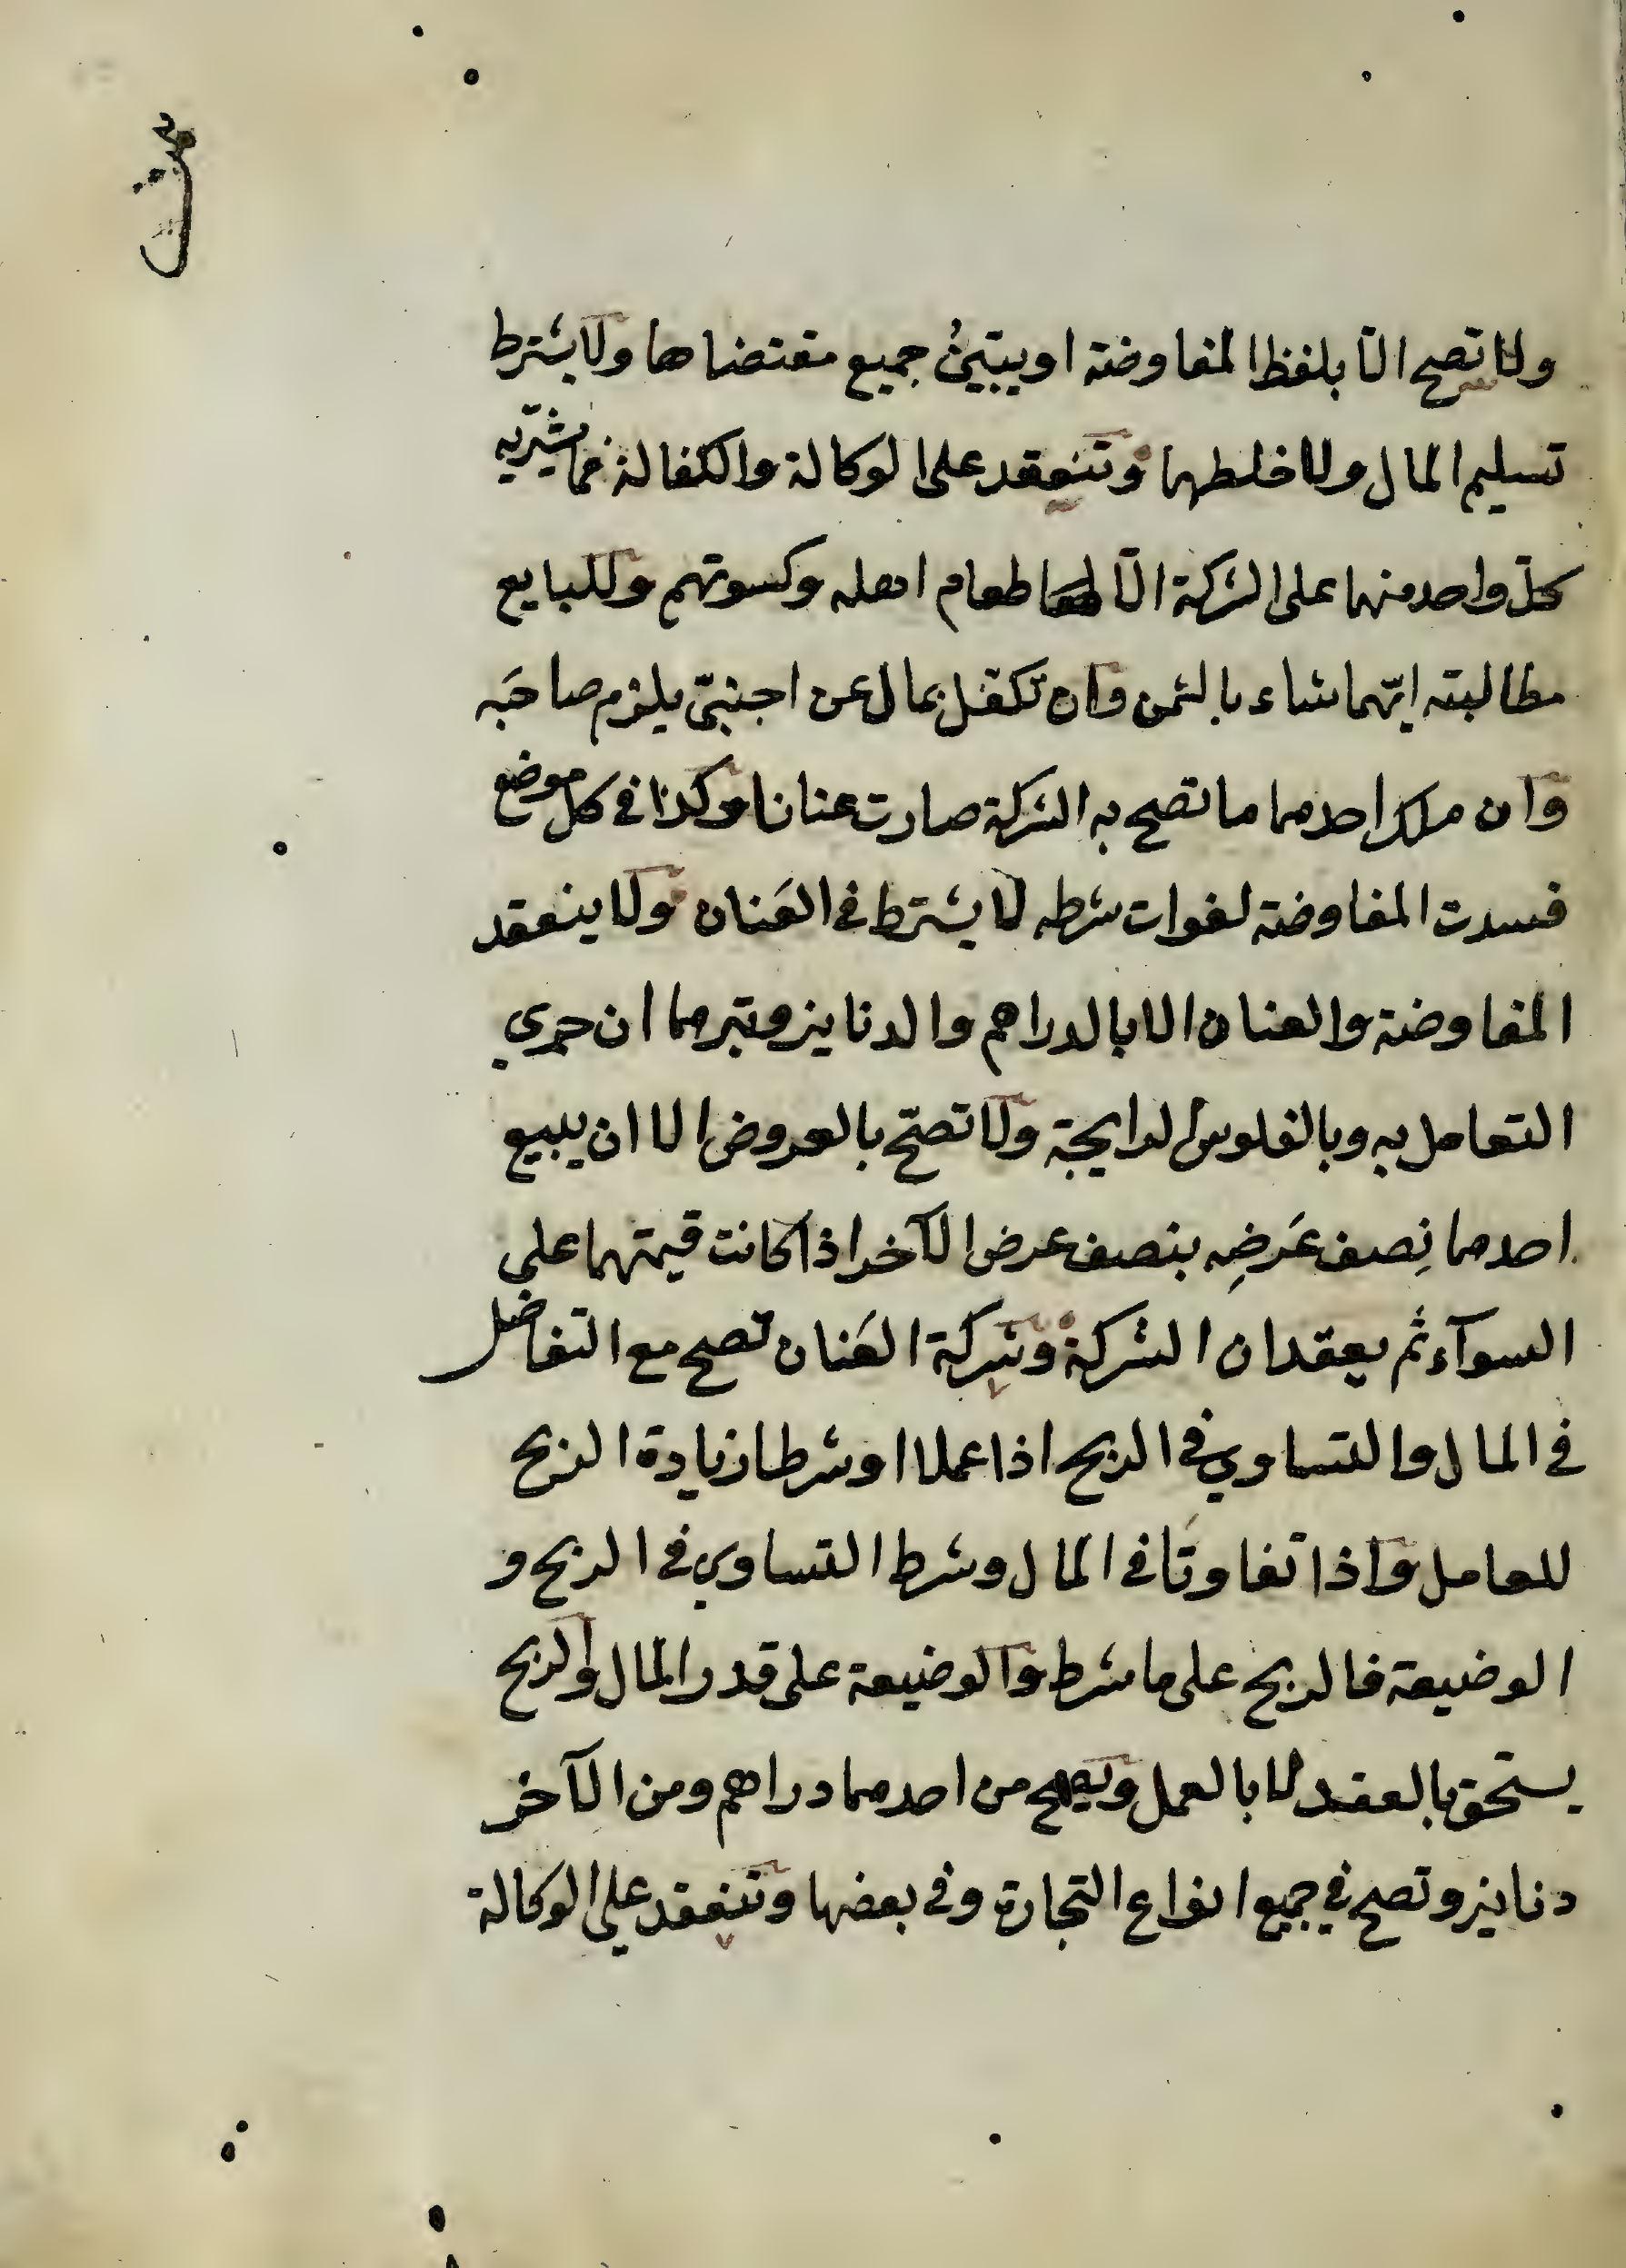 ولا تصح الّا بلفظ المفاوضة او يبيّن جميع مقتضاها ولا يشترط
تسليم المال ولا خلطهما وتنعقد على الوكالة والكفالة فما يشتريه
كلّ واحد منهما على الشركة الّا طعام اهله وكسوتهم وللبايع
مطالبته ايّهما شاء بالثمن وان تكفّل بمال عن اجنبيّ يلزم صاحبَه
وان ملك احدهما ما تصح به الشركة صارت عنانا وكذا في كل موضع
فسدت المفاوضة لفوات شرطه لا يشترط في العَنان ولا ينعقد
المفاوضة والعنان الا بالدراهم والدنانيز وتبرهما ان جري
التعامل به وبالفلوس الرايجة ولا تصحّ بالعروض الا ان يبيع
احدهما نِصف عَرَضِه بنصف عرض الآخر اذا كانت قيمتهما علي
السوآء ثم يعقدان الشركة وشركة العَنان تصح مع التفاضل
في المال والتساوي في الربح اذا عملا او شرطا زيادة الربح
للعامل واذا تفاوتَا في المال وشرط التساوي في الربح و
الوضيعة فالربح على ما شرط والوضيعة على قدر المال والربح
يستحق بالعقد لا بالعمل ويصح من احدهما دراهم ومن الآخر
دنانيز وتصح في جميع انواع التجارة وفي بعضها وتنعقد علي الوكالة